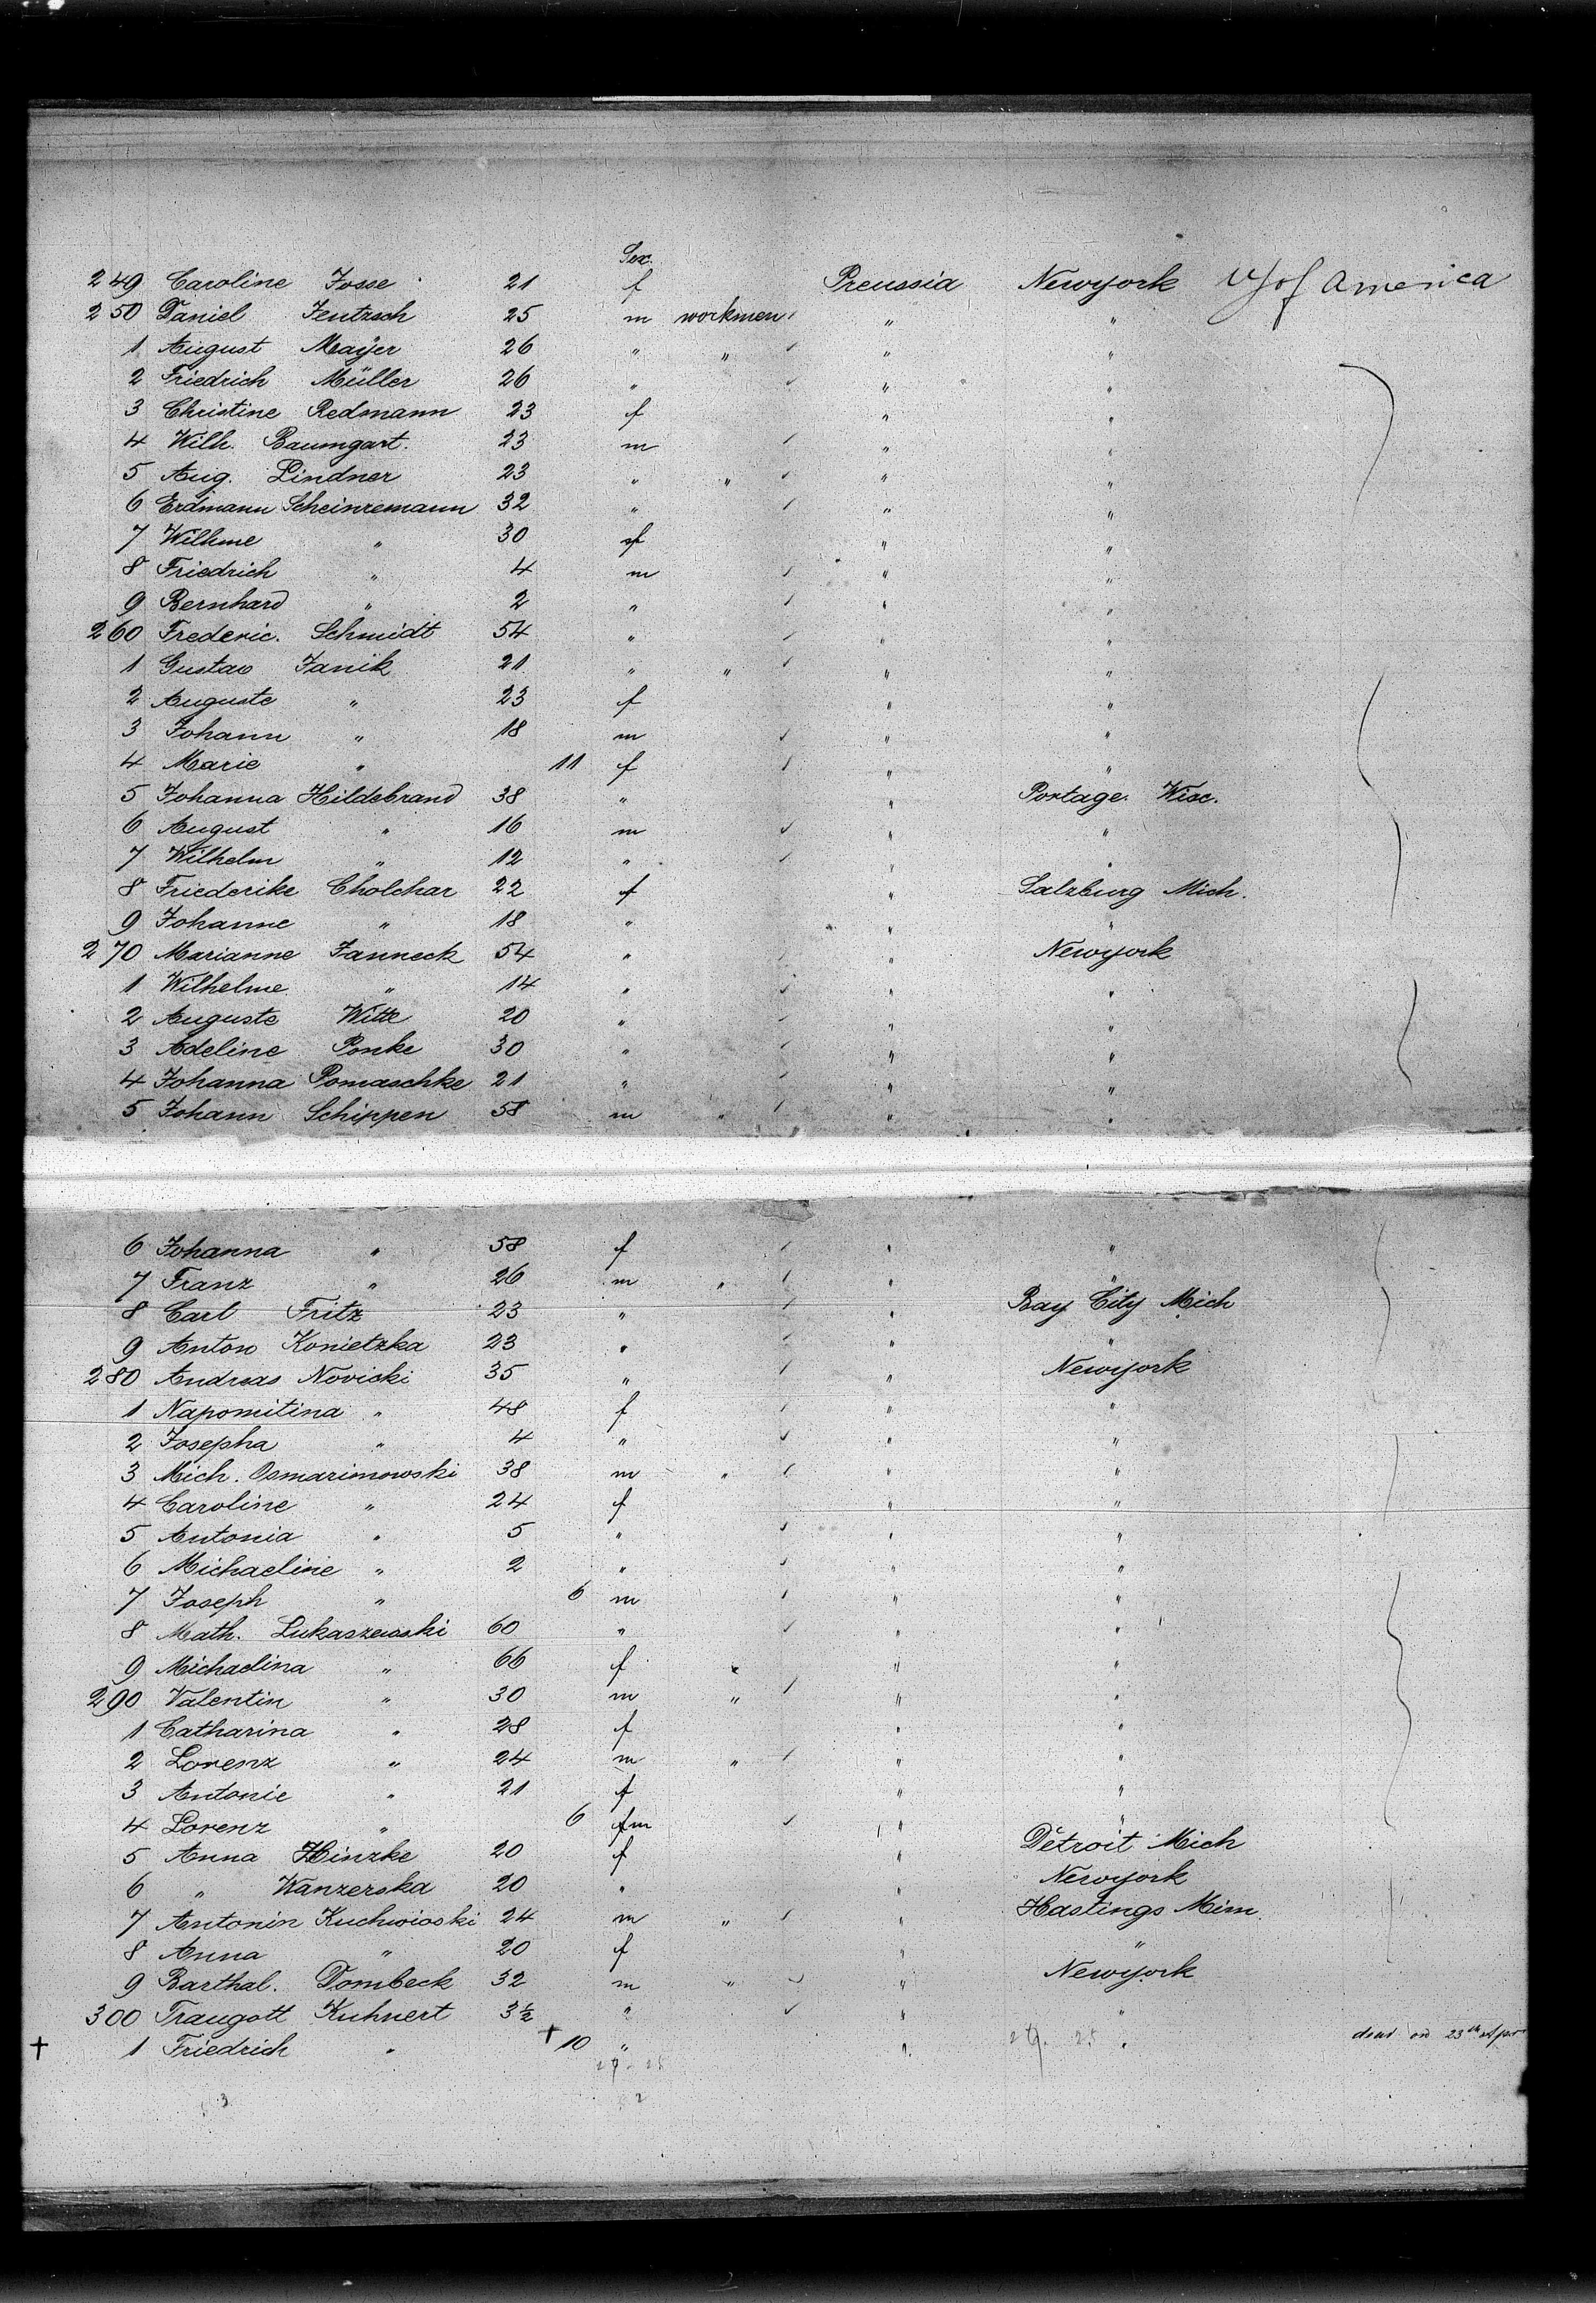 Sex.
249 Caroline Josse 21 f Preussia Newyork of America
250 Daniel Jentzsch 25 m workmen " "
1 August Mayer 26 " " " "
2 Friedrich Müller 26 " " "
3 Christine Redmann 23 f " "
4 Wilh. Baumgart. 23 m " "
5 Aug. Lindner 23 " " " "
6 Erdmann Scheinremann 32 " " "
7 Wilhme " 30 f " "
8 Friedrich " 4 m " "
9 Bernhard " 2 " " "
260 Frederic. Schmidt 54 " " "
1 Gustav Janik 21 " " " "
2 Auguste " 23 f " "
3 Johann " 18 m " "
4 Marie " 11 f " "
5 Johanna Hildebrand 38 " " Portage. Wisc.
6 August " 16 m " "
7 Wilhelm " 12 " " "
8 Friederike Cholchar 22 f " Salzburg Mich.
9 Johanne " 18 " " "
270 Marianne Janneck 54 " " Newyork
1 Wilhelme " 14 " " "
2 Auguste Witte 20 " " "
3 Adeline Ponke 30 " " "
4 Johanna Pomaschke 21 " " "
5 Johann Schippen 58 m " " "
6 Johanna " 58 f " "
7 Franz " 26 m " " "
8 Carl Fritz 23 " " Bay City Mich
9 Anton Konietzka 23 " " "
280 Andreas Novicki 35 " " Newyork
1 Napomitina " 48 f " "
2 Josepha " 4 " " "
3 Mich. Osmarimowski 38 m " " "
4 Caroline " 24 f " "
5 Antonia " 5 " " "
6 Michaeline " 2 " " "
7 Joseph " 6 m " "
8 Math. Lukaszewski 60 " " "
9 Michaelina " 66 f " " "
290 Valentin " 30 m " " "
1 Catharina " 28 f " "
2 Lorenz " 24 m " " "
3 Antonie " 21 f " "
4 Lorenz " 6 fm " "
5 Anna Hinzke 20 f " Detroit Mich
6 " Wanzerska 20 " " Newyork
7 Antonin Kuchwioski 24 m " " Hastings Minn.
8 Anna " 20 f " "
9 Barthal. Dombeck 32 m " " Newyork
300 Traugott Kuhnert 3½ " " "
† 1 Friedrich " † 10 " " " dead on 23th Apr